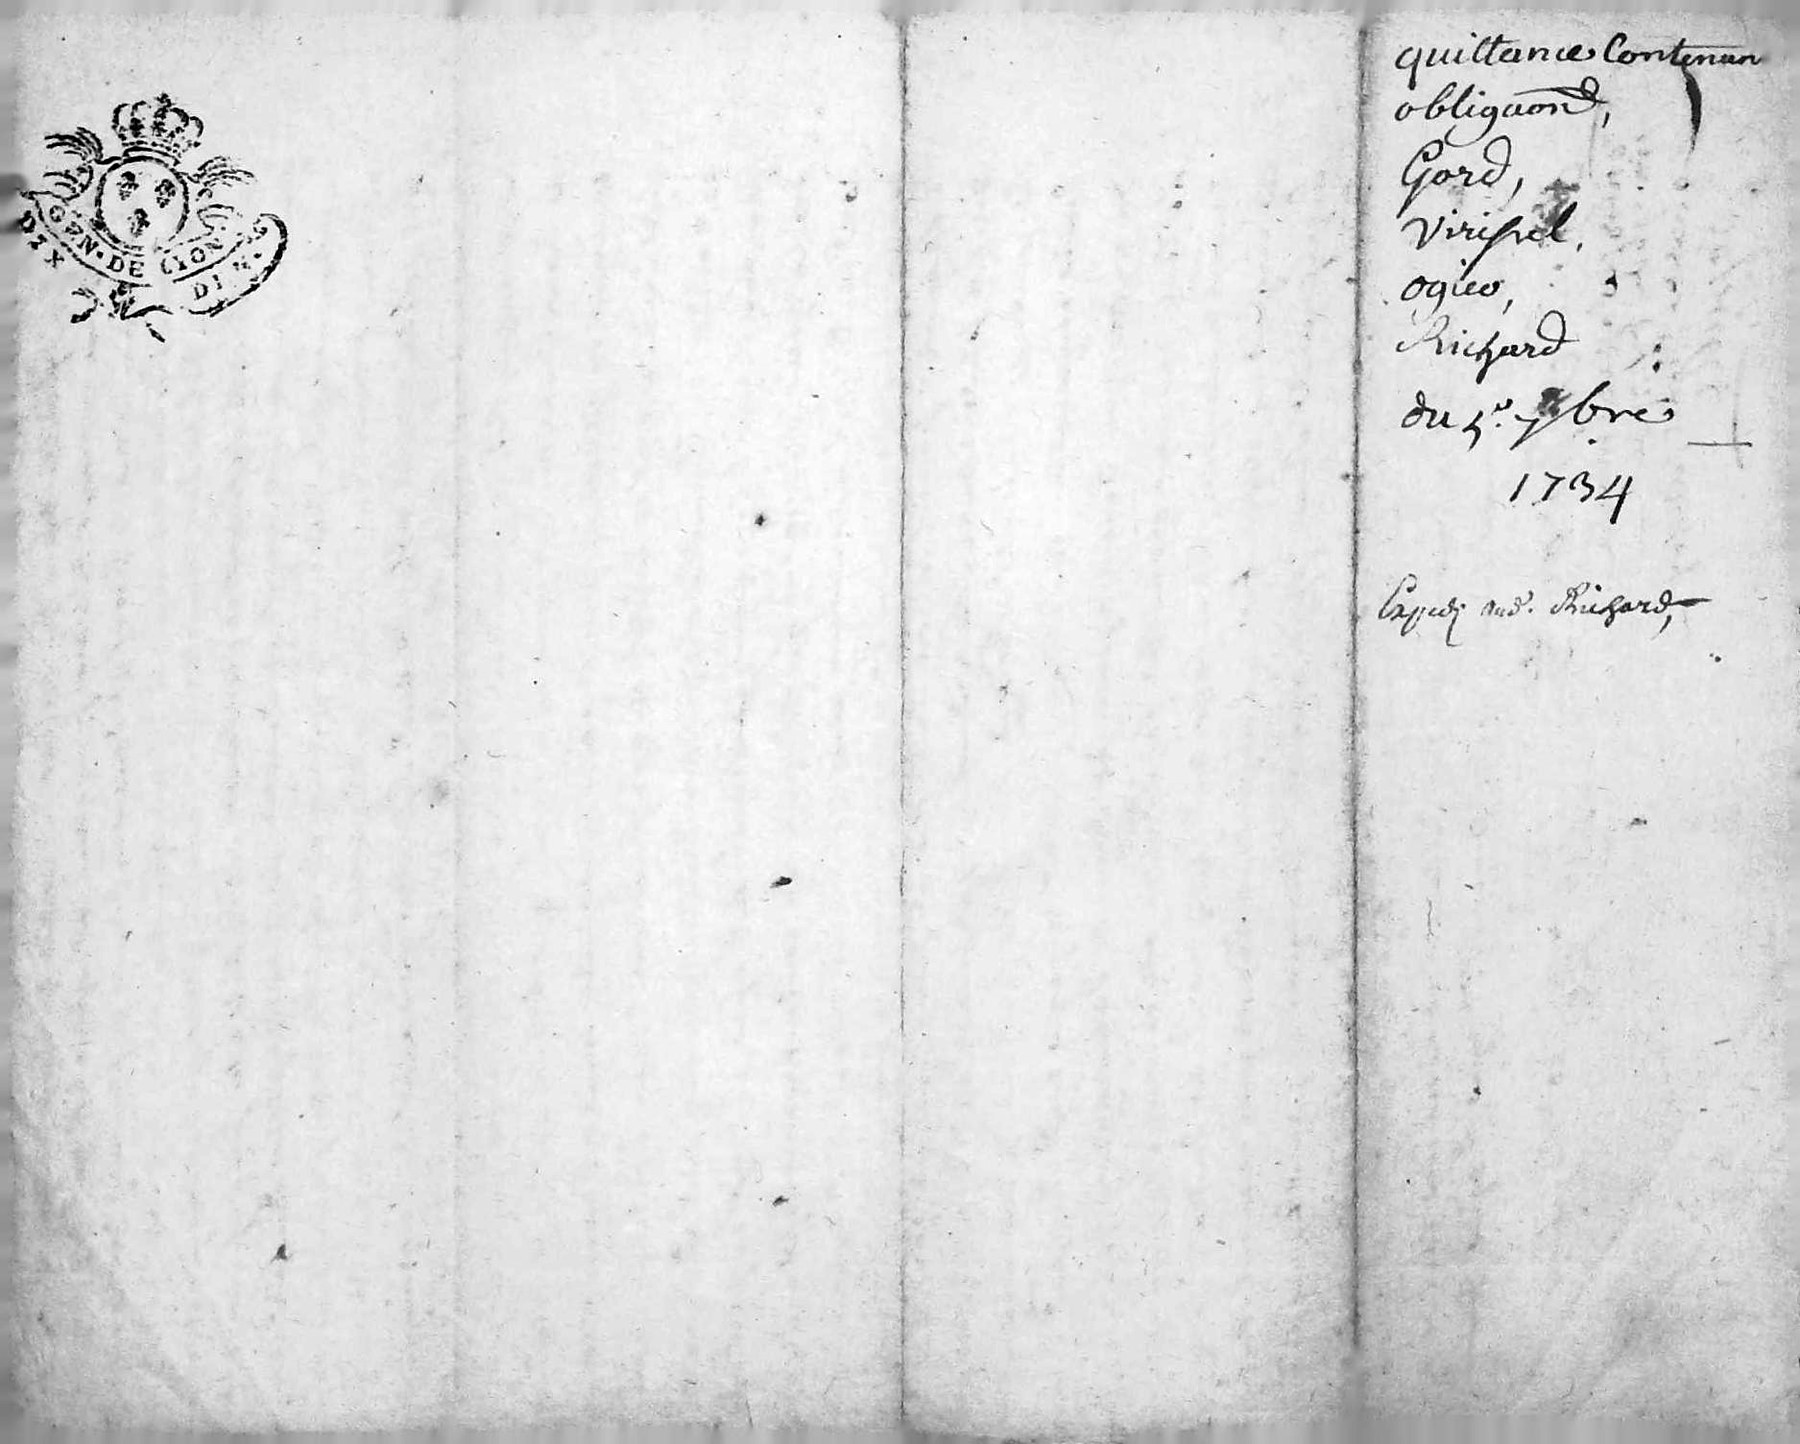 GEN·DE LYON
DIX DI·X·
quittance Contenan
obligaon,
Gord,
Virissel,
ogier,
Richard
du 5e 7bre
1734
Expedi aud. Richard,